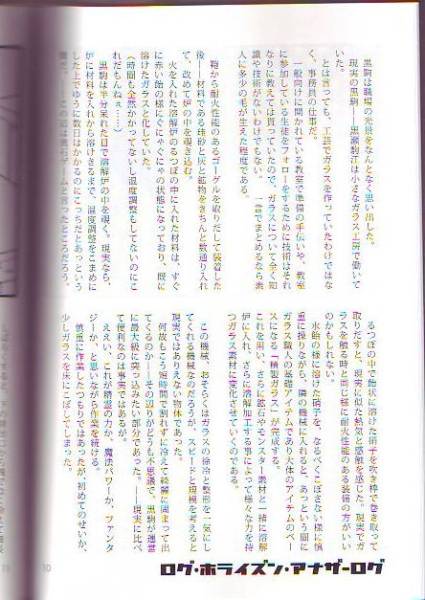 黒駒は職場の光景をなんとなく思い出した。
現実の黒駒――黒瀬駒江は小さなガラス工房で働いていた。
とは言っても、工芸でガラスを作っていたわけではなく、事務員の仕事だ。
一般向けに開かれている教室で準備の手伝いや、教室に参加している生徒をフォローをするために技術はそれなりに教えては貰っていたので、ガラスについて全く知識や技術がないわけでもない。一言でまとめるなら素人に多少の毛が生えた程度である。
鞄から耐火性能のあるゴーグルを取りだして装着した後――材料である珪砂と灰と鉱物をきちんと数通り入れて、改めて炉の中を覗き込む。
火を入れた溶解炉のるつぼの中に入れた材料は、すぐに赤い飴の様にぐにゃぐにゃの状態になっており、既に溶けたガラスと化していた。
(時間も全然かかってないし温度調整もしてないのにこれだもんねぇ……)
黒駒は半分呆れた目で溶解炉の中を覗く。現実なら、炉に材料を入れから溶けきるまで、温度調整をこまめにした上でゆうに数日はかかるのにこっちだとあっという
るつぼの中で飴状に溶けた硝子を吹き棹で巻き取って取りだすと、現実に似た熱気と感触を感じた。現実でガラスを触る時と同じ様に耐火性能のある装備の方がいいのかもしれない。
水飴の様に溶けた硝子を、なるべくこぼさない様に慎重に操りながら、隣の機械に入れると、あっという間にガラス職人の基礎アイテムであり大体のアイテムのベースになる「精製ガラス」が完成する。
これを用い、さらに鉱石やモンスター素材と一緒に溶解炉に入れ、さらに溶解加工する事によって様々な力を持つガラス素材に変化させていくのである。
この機械、おそらくはガラスの徐冷と整形を一気にしてくれる機械なのだろうが、スピードと規模を考えると現実ではありえない物体であった。
何故もこう短時間で割れずに冷えて綺麗に固まって出てくるのか――その辺りがどうも不思議で、黒駒が運営に最大級に突っ込みたい部分であった。――現実に比べて便利なのは事実ではあるが。
ええい、これが精霊の力か、魔法パワーか、ファンタジーか、と思いながら作業を続ける。
慎重に作業したつもりではあったが、初めてのせいか、少しガラスを床にこぼしてしまった。
ログ・ホライズン・アナザーログ